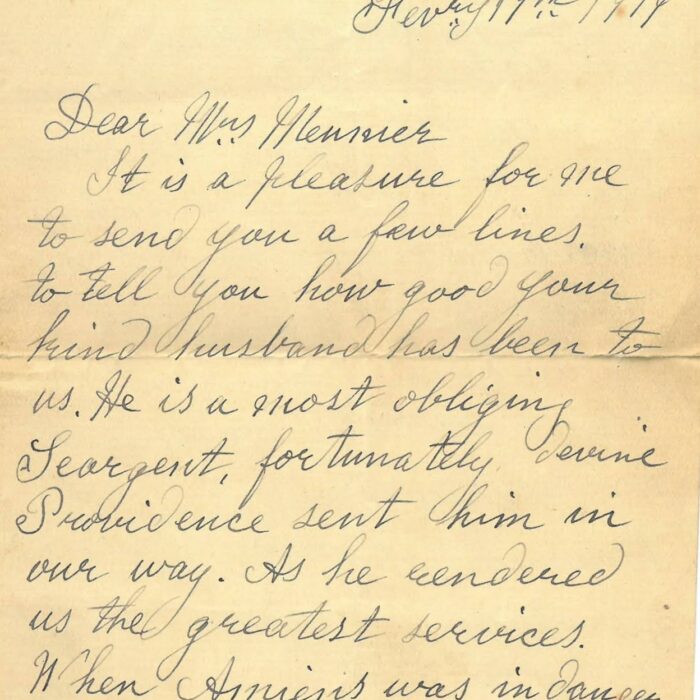 Febry 17th 1919
Dear Mrs Meunier
It is a pleasure for me
to send you a few lines.
to tell you how good your
kind husband has been to
us. He is a most obliging
Seargent, fortunately devine
Providence sent him in
our way. As he rendered
us the greatest services.
When Amiens was in danger